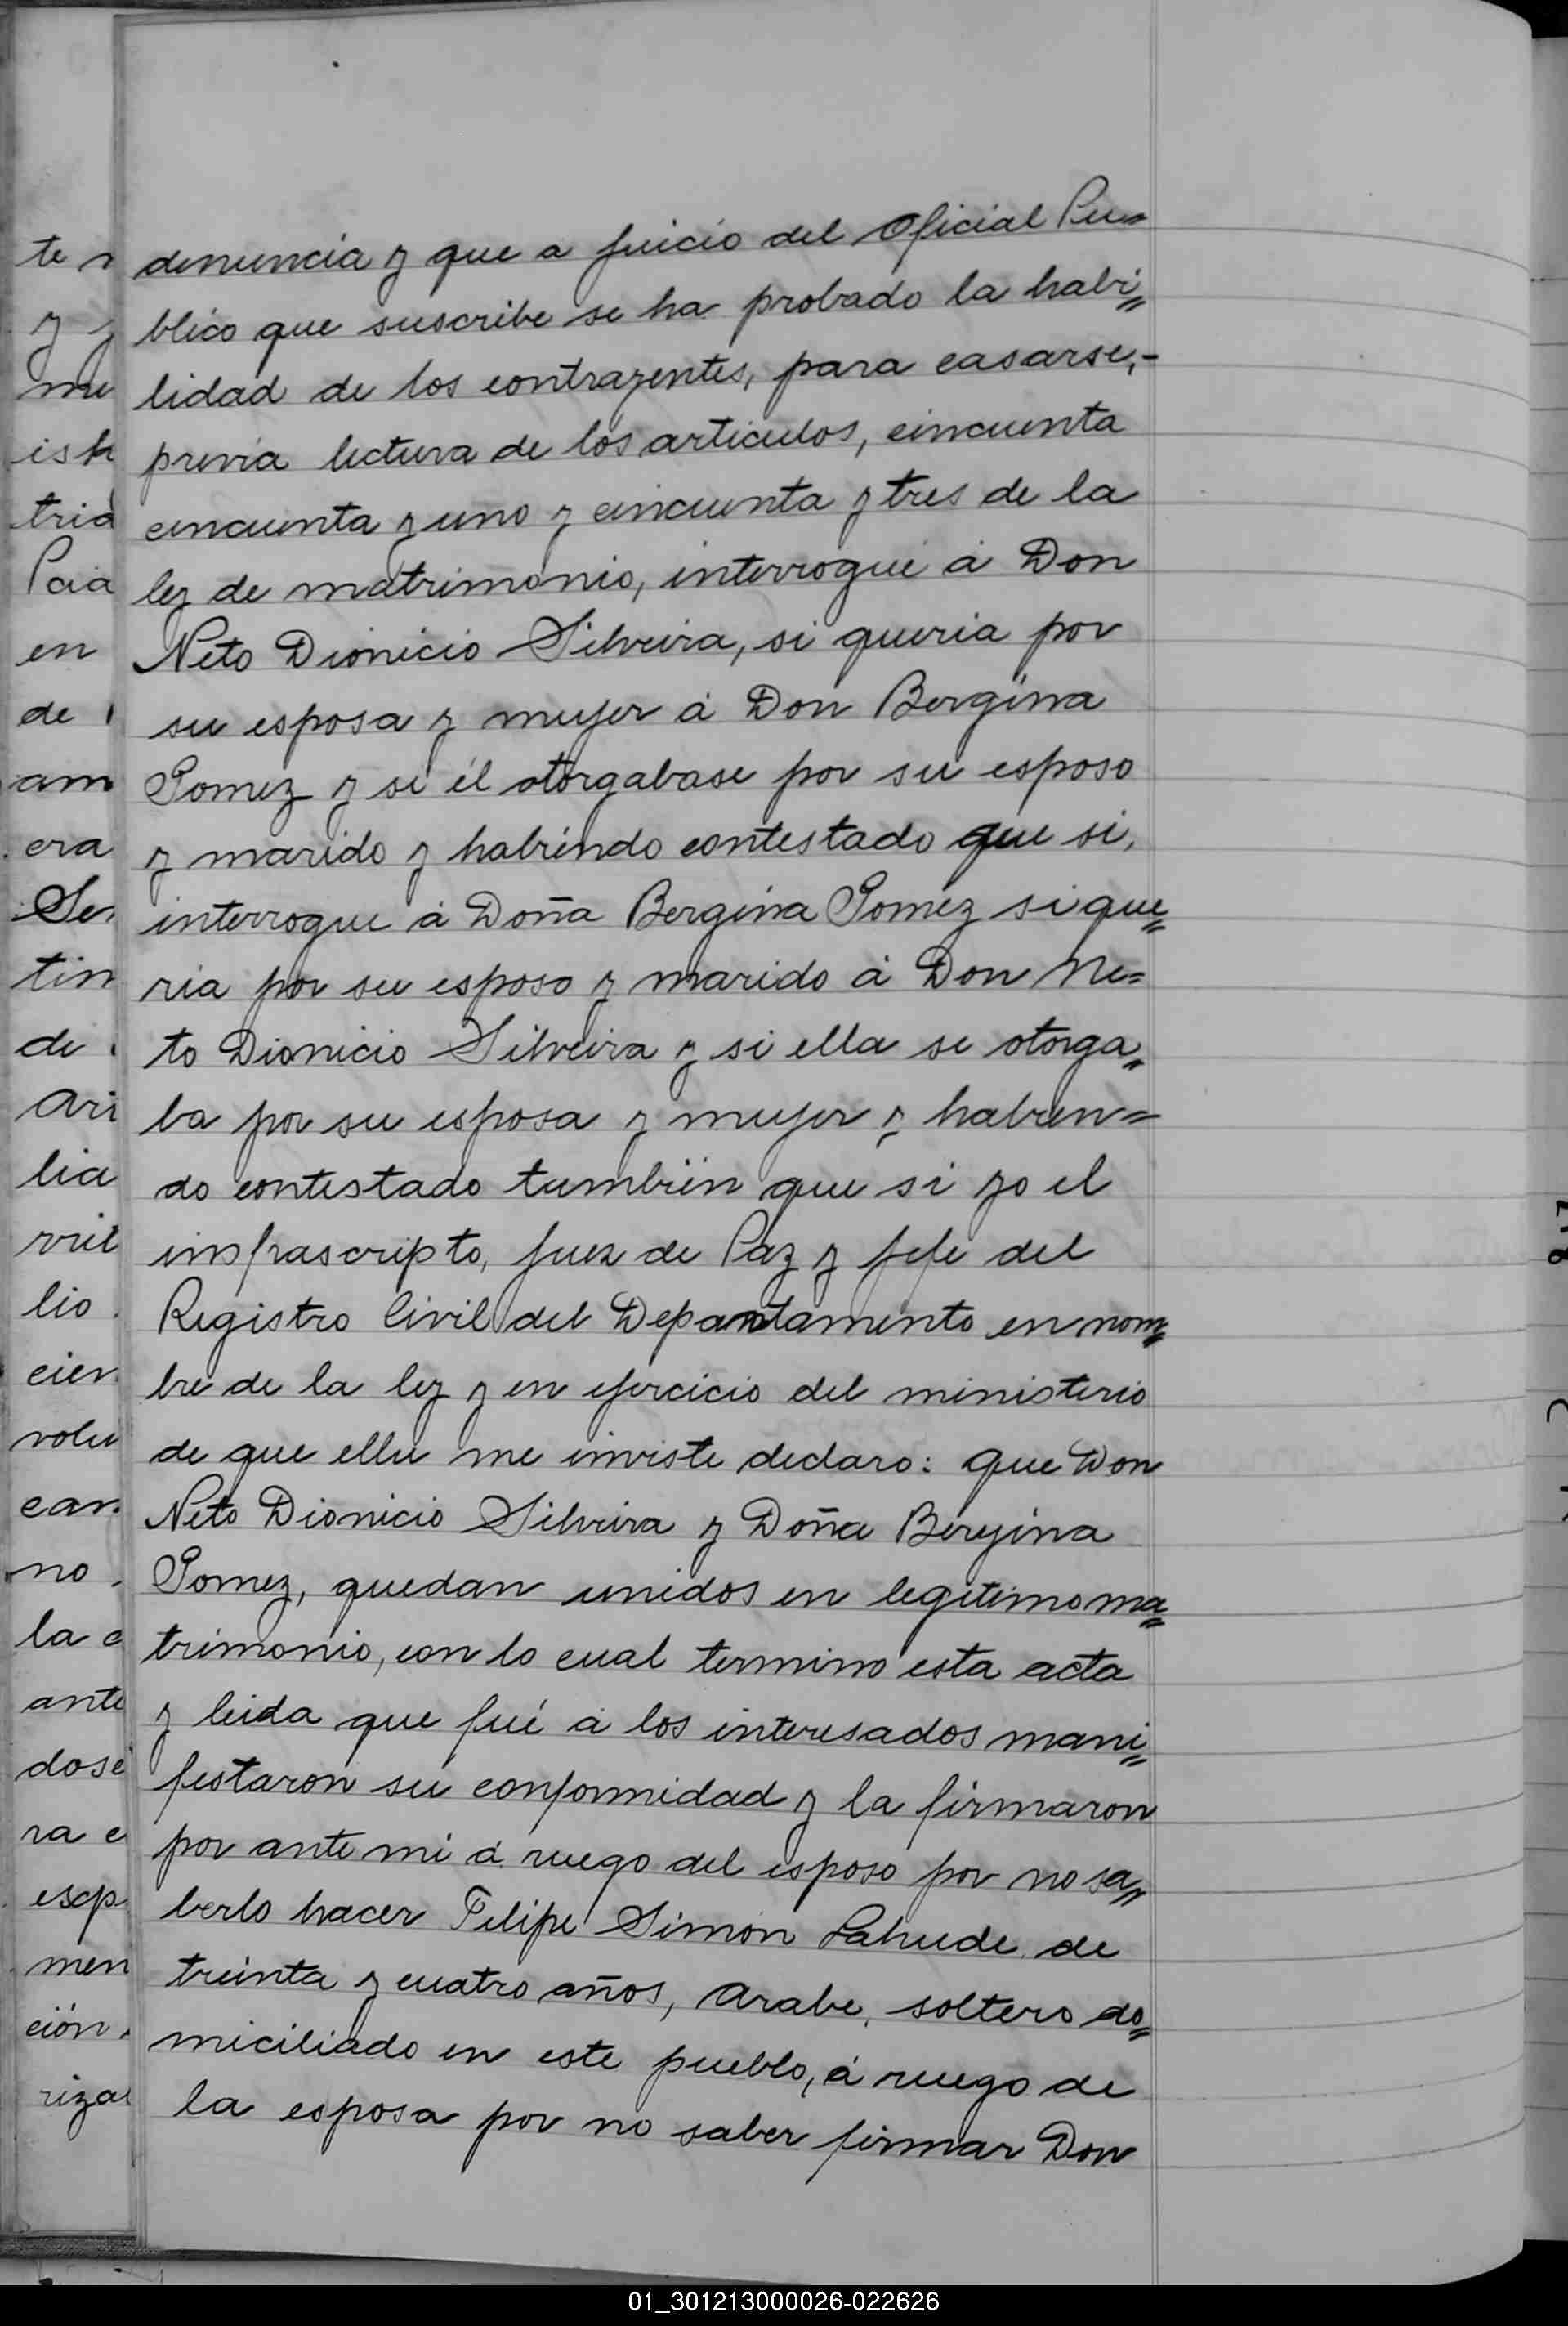 denuncia y que a juicio del Oficial Pu=
blico que suscribe se ha probado la habi=
lidad de los contrayentes, para casarse,-
previa lectura de los articulos, cincuenta
cincuenta y uno y cincuenta y tres de la
ley de matrimonio, interrogué á Don
Neto Dionicio Silveira, si queria por
su esposa y mujer á Don Bergina
Gomez y si él otorgabase por su esposo
y marido y habiendo contestado que si,
interrogue á Doña Bergina Gomez si que=
ria por su esposo y marido á Don Ne=
to Dionicio Silveira y si ella se otorga=
ba por su esposa y mujer y habien=
do contestado tumbien que si yo el
infrascripto, Juez de Paz y Jefe del
Registro Civil del Departamento en nom=
bre de la ley y en ejercicio del ministerio
de que ella me inviste declaro: que Don
Neto Dionicio Silveira y Doña Bergina
Gomez, quedan unidos en legitimo ma=
trimonio, con lo cual termino esta acta
y leida que fué á los interesados mani=
festaron su conformidad y la firmaron
por ante mi á ruego del esposo por no sa=
berlo hacer Felipe Simón Lahude de
treinta y cuatro años, Arabe, soltero do=
miciliado en este pueblo, á ruego de
la esposa por no saber firmar Don
01_301213000026-022626